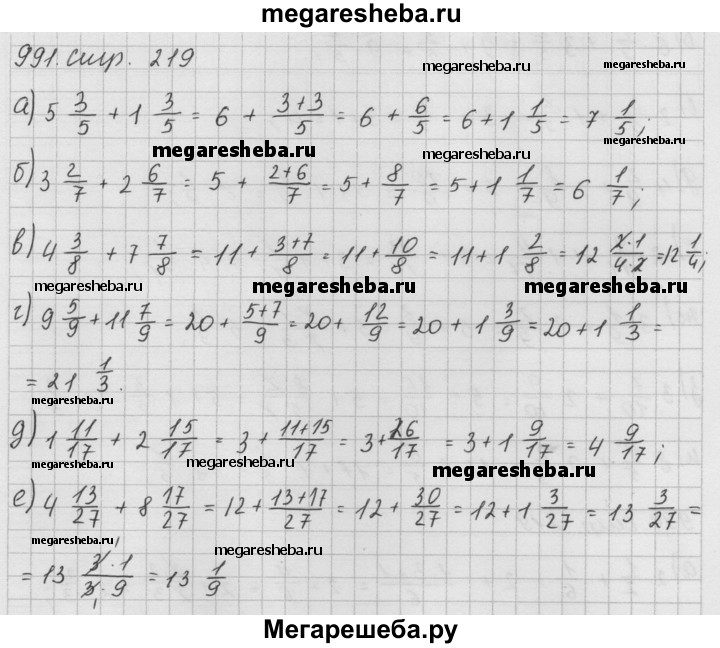 megaresheba.ru
991. стр. 219
megaresheba.ru
а) 5 3/5 + 1 3/5 = 6 + (3+3)/5 = 6 + 6/5 = 6 + 1 1/5 = 7 1/5;
megaresheba.ru megaresheba.ru
б) 3 2/7 + 2 6/7 = 5 + (2+6)/7 = 5 + 8/7 = 5 + 1 1/7 = 6 1/7;
в) 4 3/8 + 7 7/8 = 11 + (3+7)/8 = 11 + 10/8 = 11 + 1 2/8 = 12 (2·1)/(4·2) = 12 1/4;
megaresheba.ru megaresheba.ru megaresheba.ru
г) 9 5/9 + 11 7/9 = 20 + (5+7)/9 = 20 + 12/9 = 20 + 1 3/9 = 20 + 1 1/3 =
= 21 1/3.
д) 1 11/17 + 2 15/17 = 3 + (11+15)/17 = 3 + 26/17 = 3 + 1 9/17 = 4 9/17;
megaresheba.ru megaresheba.ru megaresheba.ru
е) 4 13/27 + 8 17/27 = 12 + (13+17)/27 = 12 + 30/27 = 12 + 1 3/27 = 13 3/27 =
megaresheba.ru megaresheba.ru
= 13 (3·1)/(3·9) = 13 1/9
Мегарешеба.ру